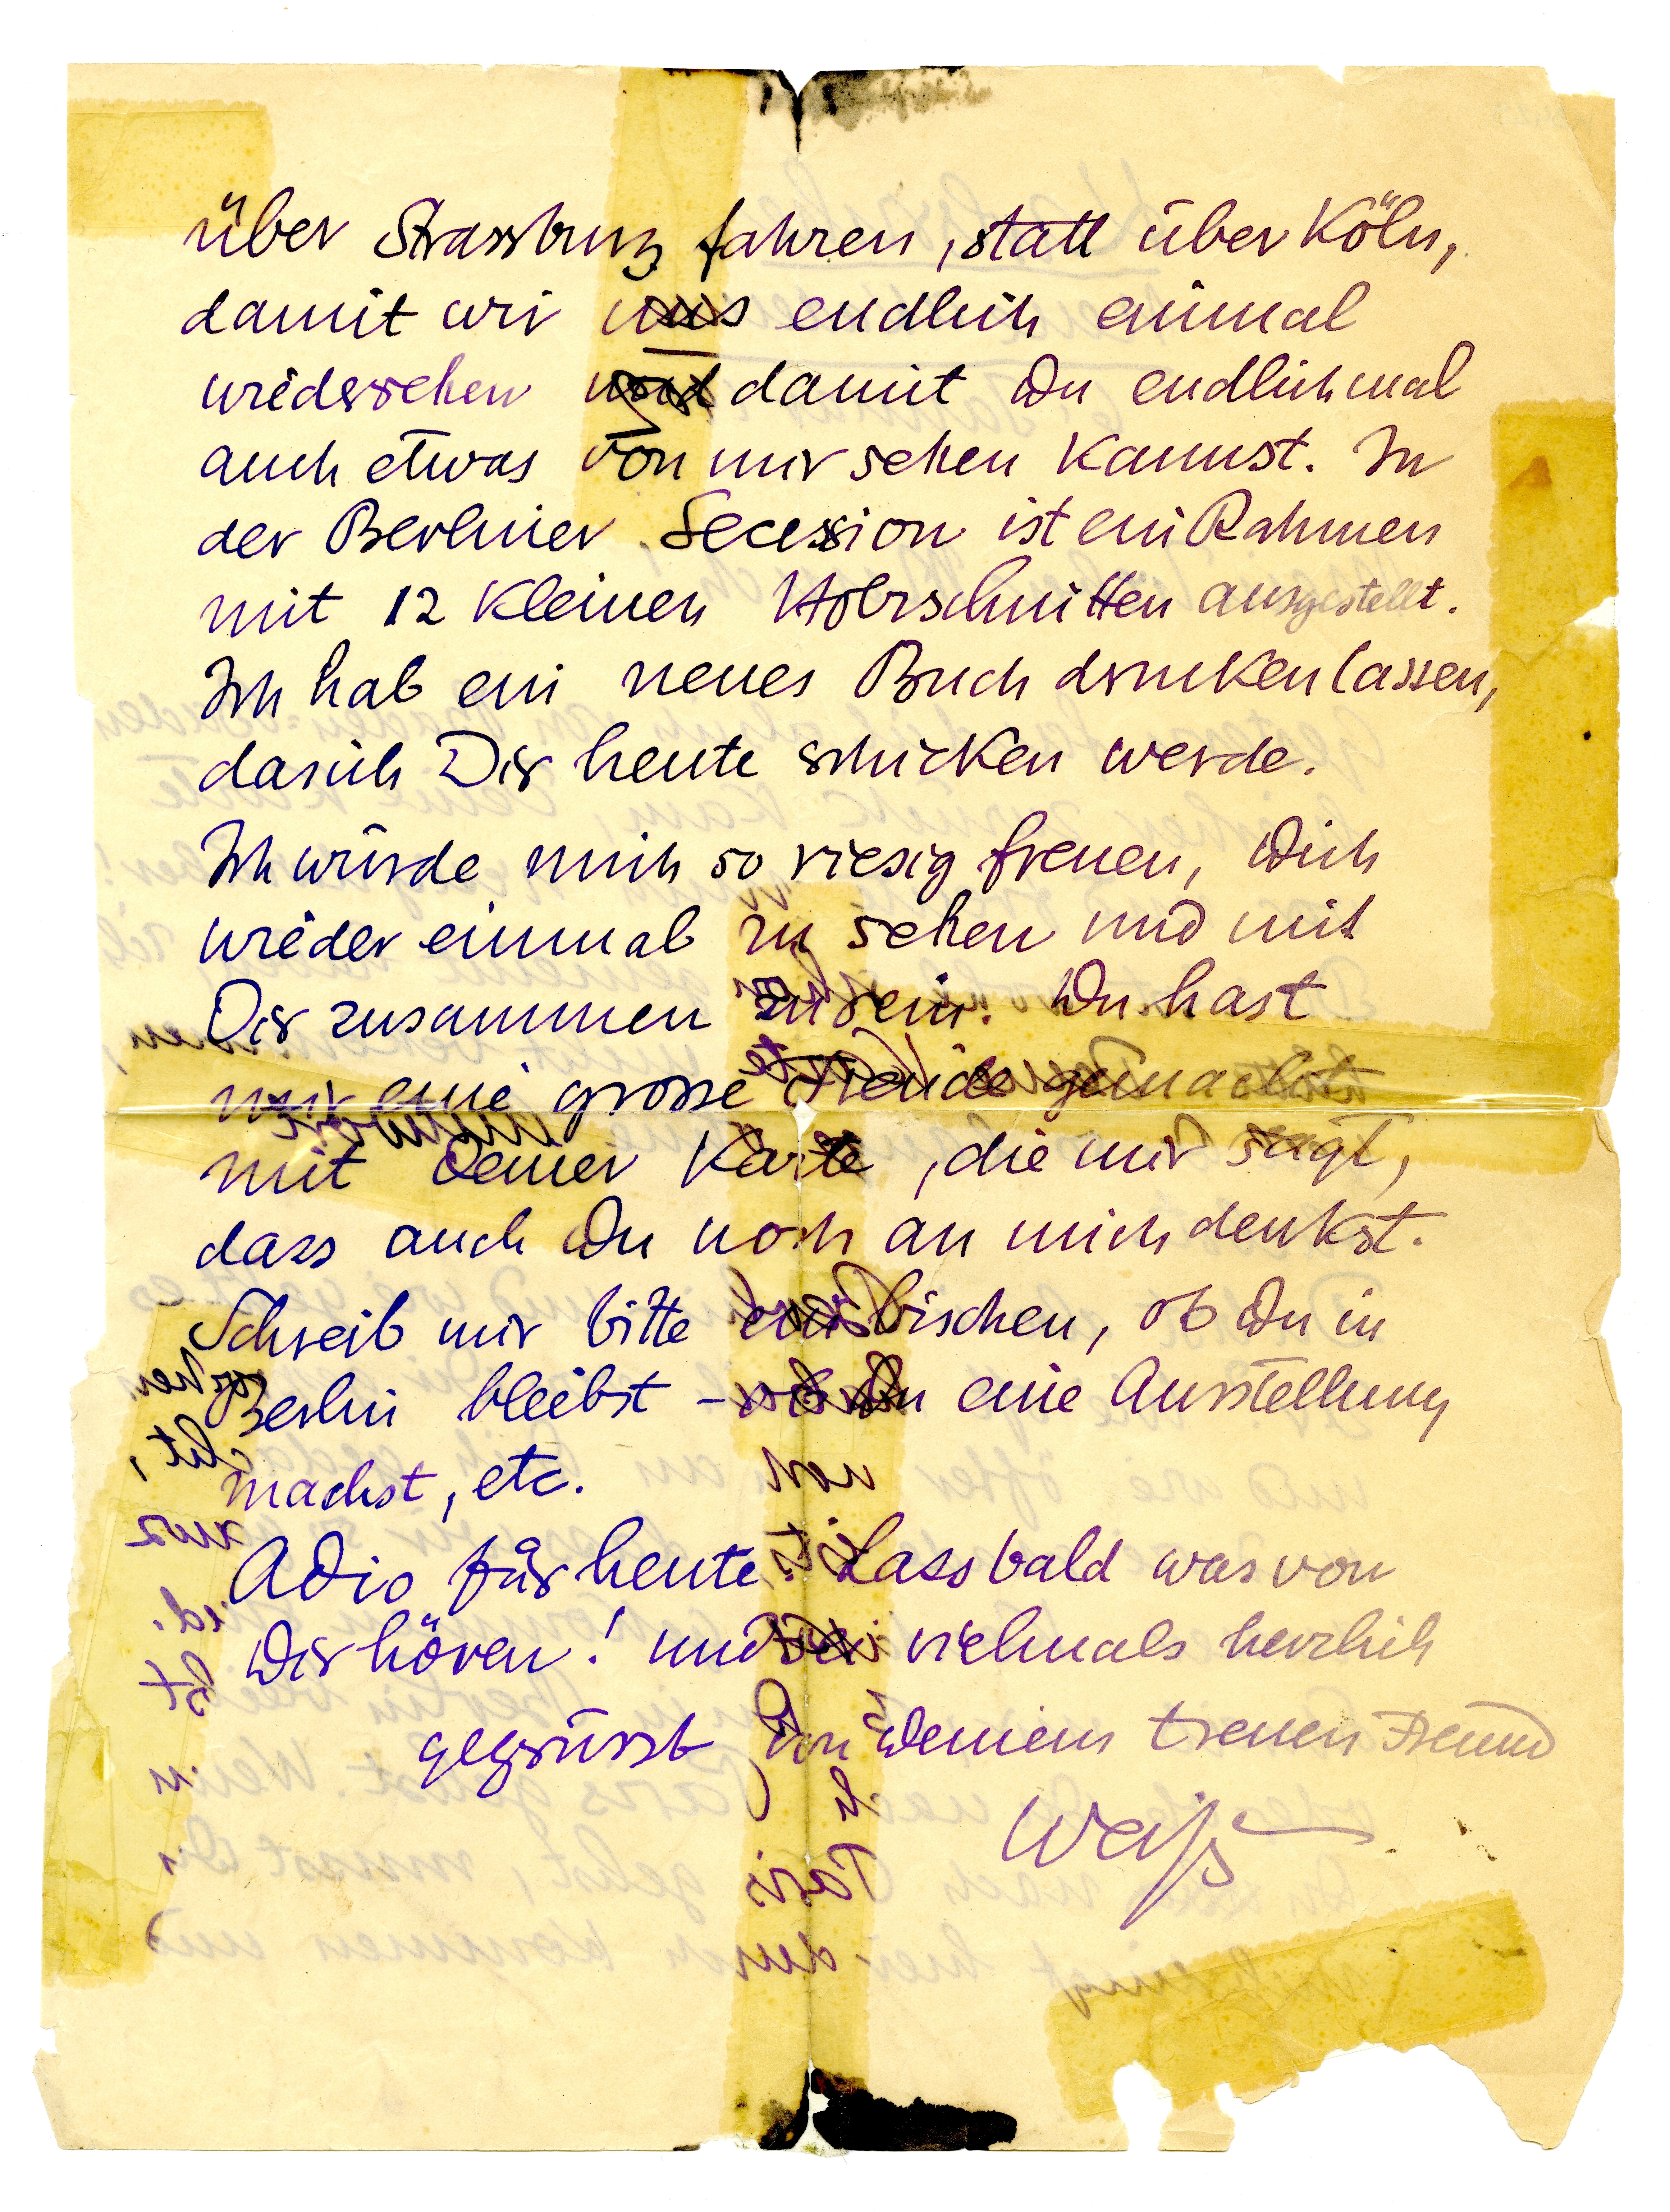 über Strassburg fahren, statt über Köln,
damit wir uns endlich einmal
wiedersehen und damit Du endlich mal
auch etwas von mir sehen kannst. In
der Berliner Secession ist ein Rahmen
mit 12 kleinen Holzschnitten ausgestellt.
Ich hab ein neues Buch drucken lassen,
das ich Dir heute schicken werde.
Ich würde mich so riesig freuen, Dich
wieder einmal zu sehen und mit
Dir zusammen zu sein. Du hast
mir eine grosse Freude gemacht
mit Deiner Karte, die mir sagt,
dass auch Du noch an mich denkst.
Schreib mir bitte ein bischen, ob Du in
Berlin bleibst – ob Du eine Ausstellung
machst, etc.
Adio für heute. Lass bald was von
Dir hören! und sei vielmals herzlich
gegrüsst von Deinem treuen Freund
Weiß